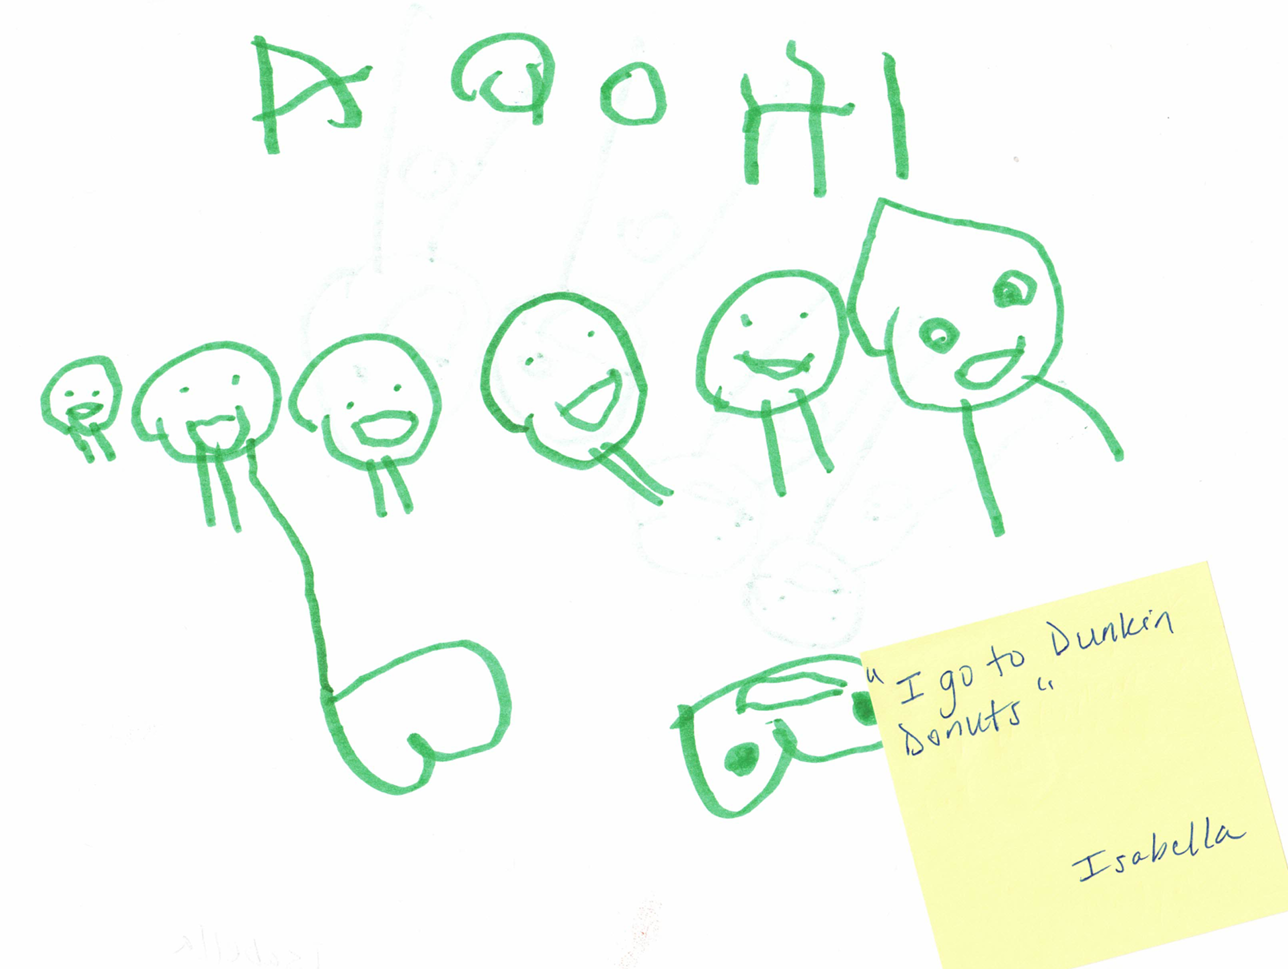 A a O H I
"I go to Dunkin
Donuts"
Isabella